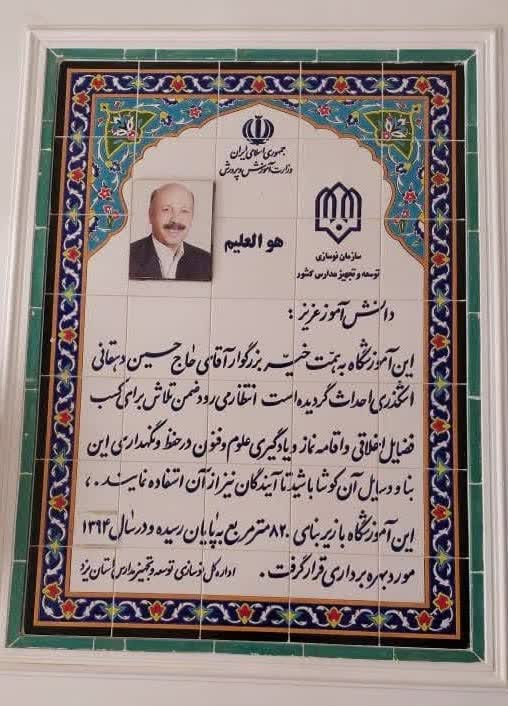 جمهوری اسلامی ایران
وزارت آموزش و پرورش
هو العلیم
سازمان نوسازی
توسعه و تجهیز مدارس کشور
دانش آموز عزیز :
این آموزشگاه به همت خیر بزرگوار آقای حاج حسین دهقانی
اشکذری احداث گردیده است انتظار می رود ضمن تلاش برای کسب
فضایل اخلاقی و اقامه نماز و یادگیری علوم و فنون در حفظ و نگهداری این
بنا و وسایل آن کوشا باشید تا آیندگان نیز از آن استفاده نمایند .،
این آموزشگاه با زیر بنای ۸۲۰ مترمربع به پایان رسیده و در سال ۱۳۹۴
مورد بهره برداری قرار گرفت .
اداره کل نوسازی توسعه و تجهیز مدارس استان یزد